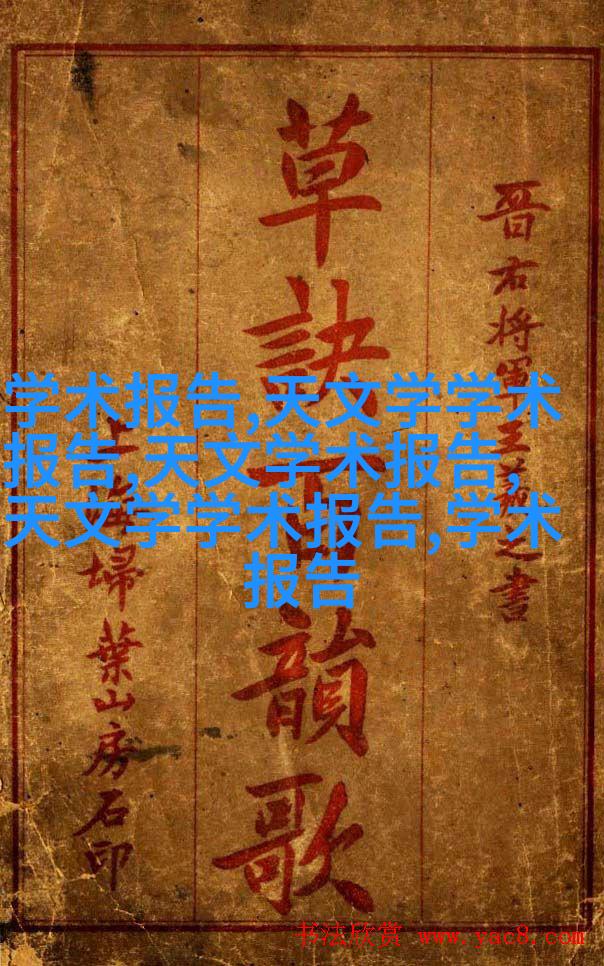 晋右将軍王羲之書
草訣百韻歌
上海掃葉山房石印
学术报告,天文学学术
报告,天文学术报告,
天文学学术报告,学术
报告
书法欣赏 www.yac8.com